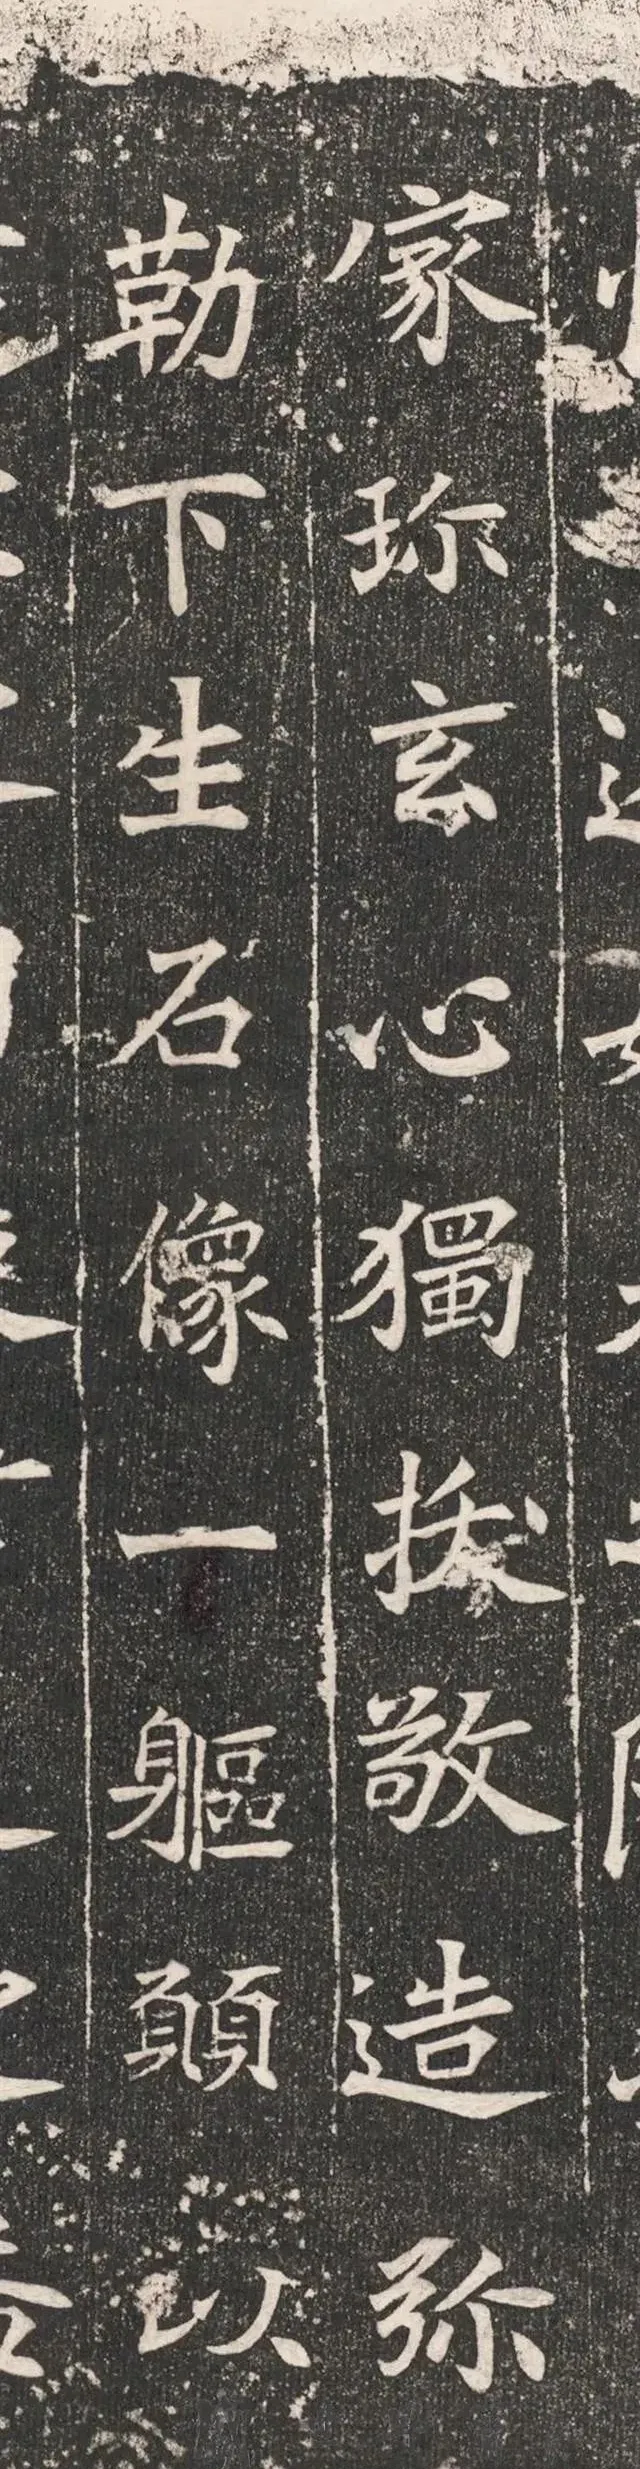 家珎玄心獨拔敬造弥
勒下生石像一軀願以